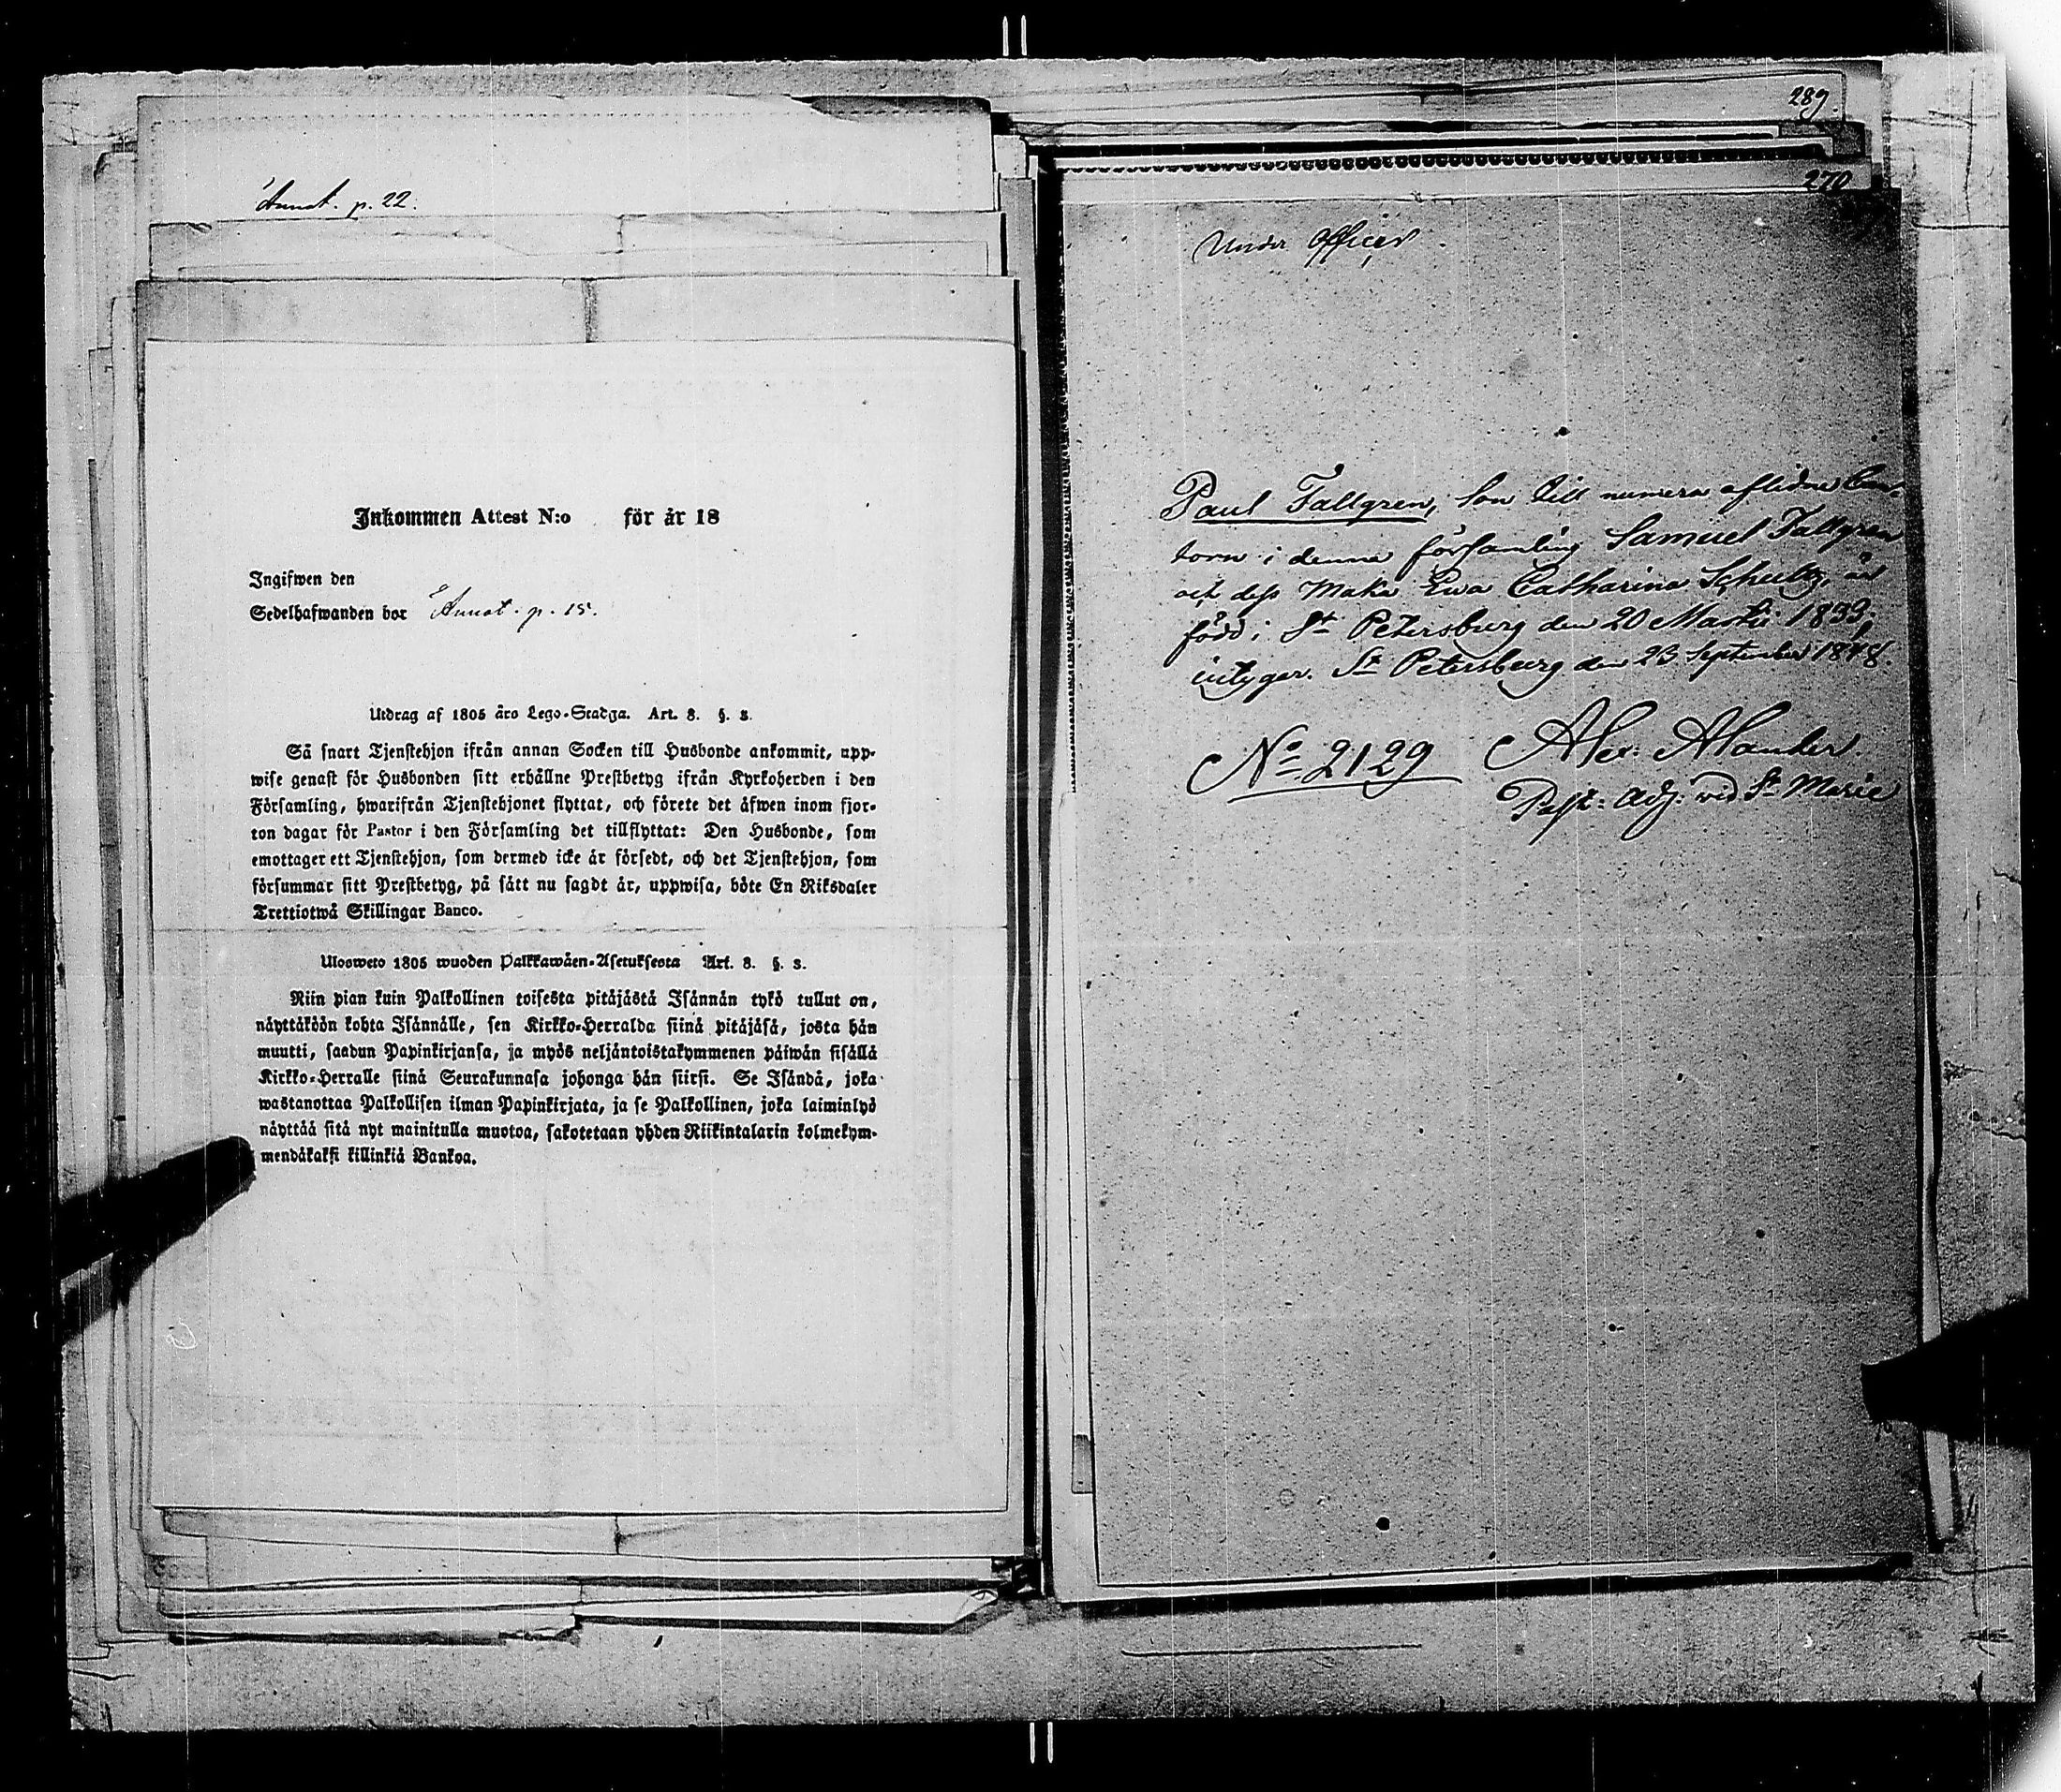 Annot. p. 22.
Inkommen Attest N:o för år 18
Ingifwen den
Sedelhafwanden bor Annot. p. 15.
Utdrag af 1805 års Lego-Stadga. Art. 8. §. 3.
Så snart Tjenstehjon ifrån annan Socken till Husbonde ankommit, upp-
wise genast för Husbonden sitt erhållne Prestbetyg ifrån Kyrkoherden i den
Församling, hwarifrån Tjenstehjonet flyttat, och förete det äfwen inom fjor-
ton dagar för Pastor i den Församling det tillflyttat: Den Husbonde, som
emottager ett Tjenstehjon, som dermed icke är försedt, och det Tjenstehjon, som
försummar sitt Prestbetyg, på sätt nu sagdt är, uppwisa, böte En Riksdaler
Trettiotwå Skillingar Banco.
Ulosweto 1805 wuoden Palkkawäen-Asetuksesta Art. 8. §. 3.
Niin pian kuin Palkollinen toisesta pitäjästä Isännän tykö tullut on,
näyttäköön kohta Isännälle, sen Kirkko-Herralda siinä pitäjäsä, josta hän
muutti, saadun Papinkirjansa, ja myös neljäntoistakymmenen päiwän sisällä
Kirkko-Herralle siinä Seurakunnasa johonga hän siirsi. Se Isändä, joka
wastanottaa Palkollisen ilman Papinkirjata, ja se Palkollinen, joka laiminlyö
näyttää sitä nyt mainitulla muotoa, sakotetaan yhden Riikintalarin kolmekym-
mendäkaksi killinkiä Bankoa.
289.
270
Under Officer.
Paul Fallgren, Son till numera aflidne Can-
torn i denna församling Samuel Fallgren
och dess Maka Ewa Catharina Schultz, är
född i St Petersburg den 20 Martii 1833,
intygar. St Petersburg den 23 September 1848.
No 2129 Alex. Alander.
Past: Adj: wid St Marie